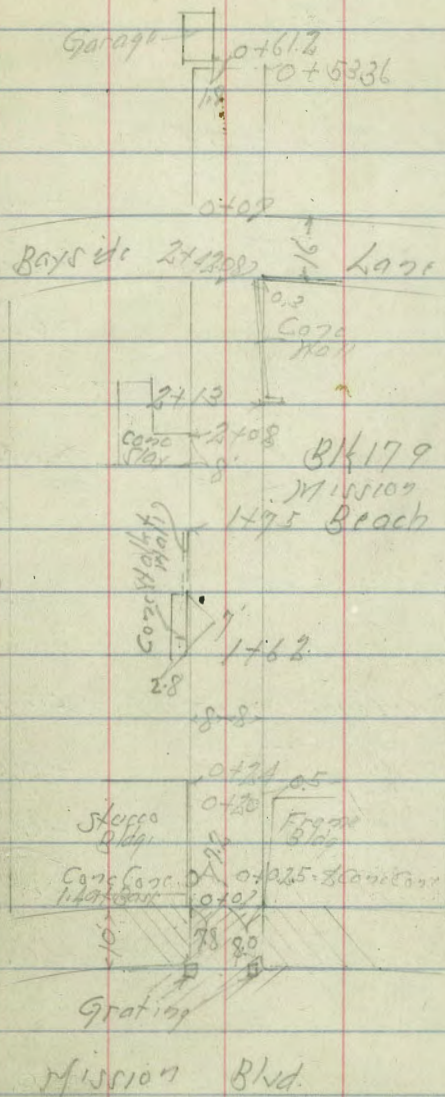 Garage
0+61.2
0+53.36
1.8
0+07
Bayside 2+42.08 Lane
16'
0.3
Conc
Wall
2+13
Conc
Slab
2+08
8'
Blk 179
Mission
Beach
1+75
7'
1+62
2.8
8 8
0+24
0.5
0+20
Stucco
Bldg.
Frame
Bldg
Conc Conc
0+02.5
0+02
10'
7.8 8.0
Grating
Mission Blvd.